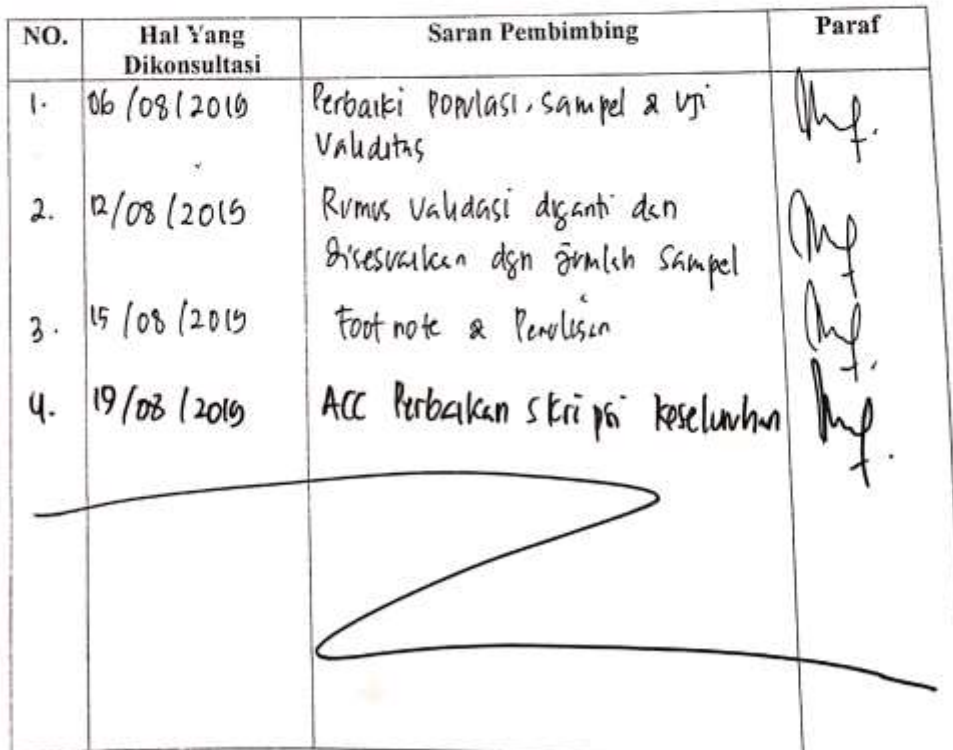 NO. Hal Yang Dikonsultasi Saran Pembimbing Paraf
1. 06/08/2019 Perbaiki Populasi, sampel & Uji
Validitas
2. 12/08/2019 Rumus Validasi diganti dan
disesuaikan dgn jumlah sampel
3. 15/08/2019 Footnote & Penulisan
4. 19/08/2019 ACC Perbaikan skripsi keseluruhan